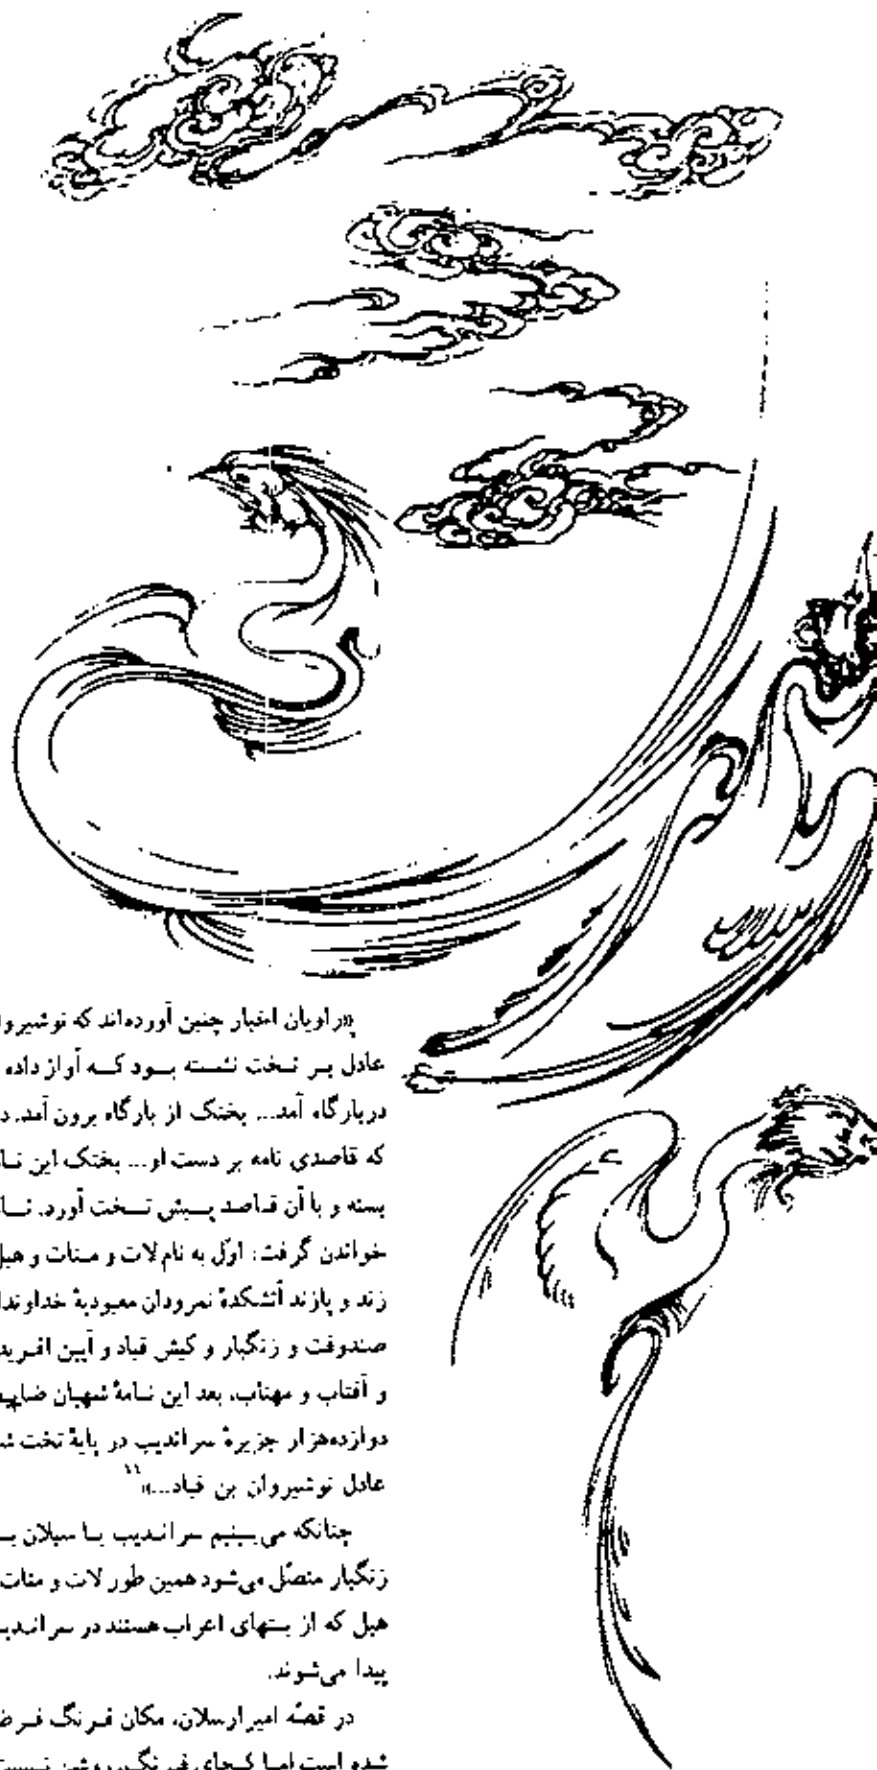 «راویان اخبار چنین آورده‌اند که نوشیروا
عادل بر تخت نشسته بود که آواز داده
دربارگاه آمد... بختک از بارگاه برون آمد، د
که قاصدی نامه بر دست او... بختک این نا
بسته و با آن قاصد پیش تخت آورد. نا
خواندن گرفت: اوّل به نام لات و منات و هبل
زند و پازند آتشکدهٔ نمرودان معبودیهٔ خداوندا
صندوقت و زنگبار و کیش قباد و آیین افرید
و آفتاب و مهتاب، بعد این نامهٔ شهبان
دوازده‌هزار جزیرهٔ سراندیب در پایهٔ تخت ش
عادل نوشیروان بن قباد...»۱۱
چنانکه می‌بینیم سراندیب یا سیلان ب
زنگبار متصّل می‌شود همین طور لات و منات
هبل که از بتهای اعراب هستند در سراندی
پیدا می‌شوند.
در قصّه امیرارسلان، مکان فرنگ فرض
شده است اما کجای فرنگ، روشن نیست